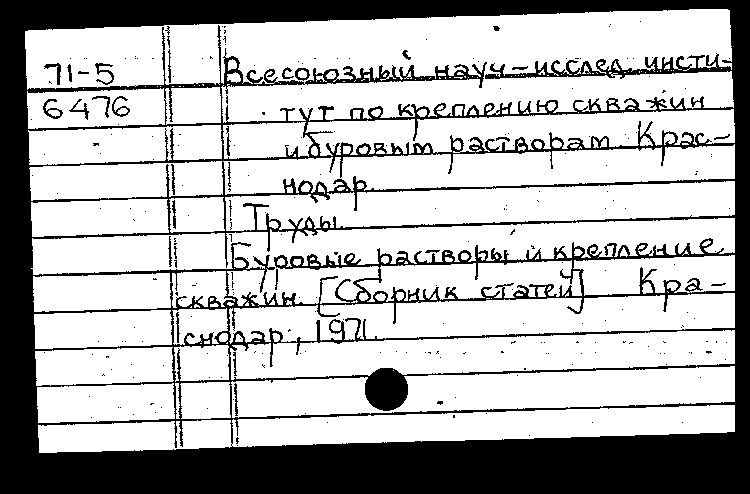 71-5 Всесоюзный науч-исслед. инсти-
6476 тут по креплению скважин
и буровым растворам Крас-
нодар.
Труды.
Буровые растворы и крепление
скважин. [Сборник статей] Кра-
снодар, 1971.